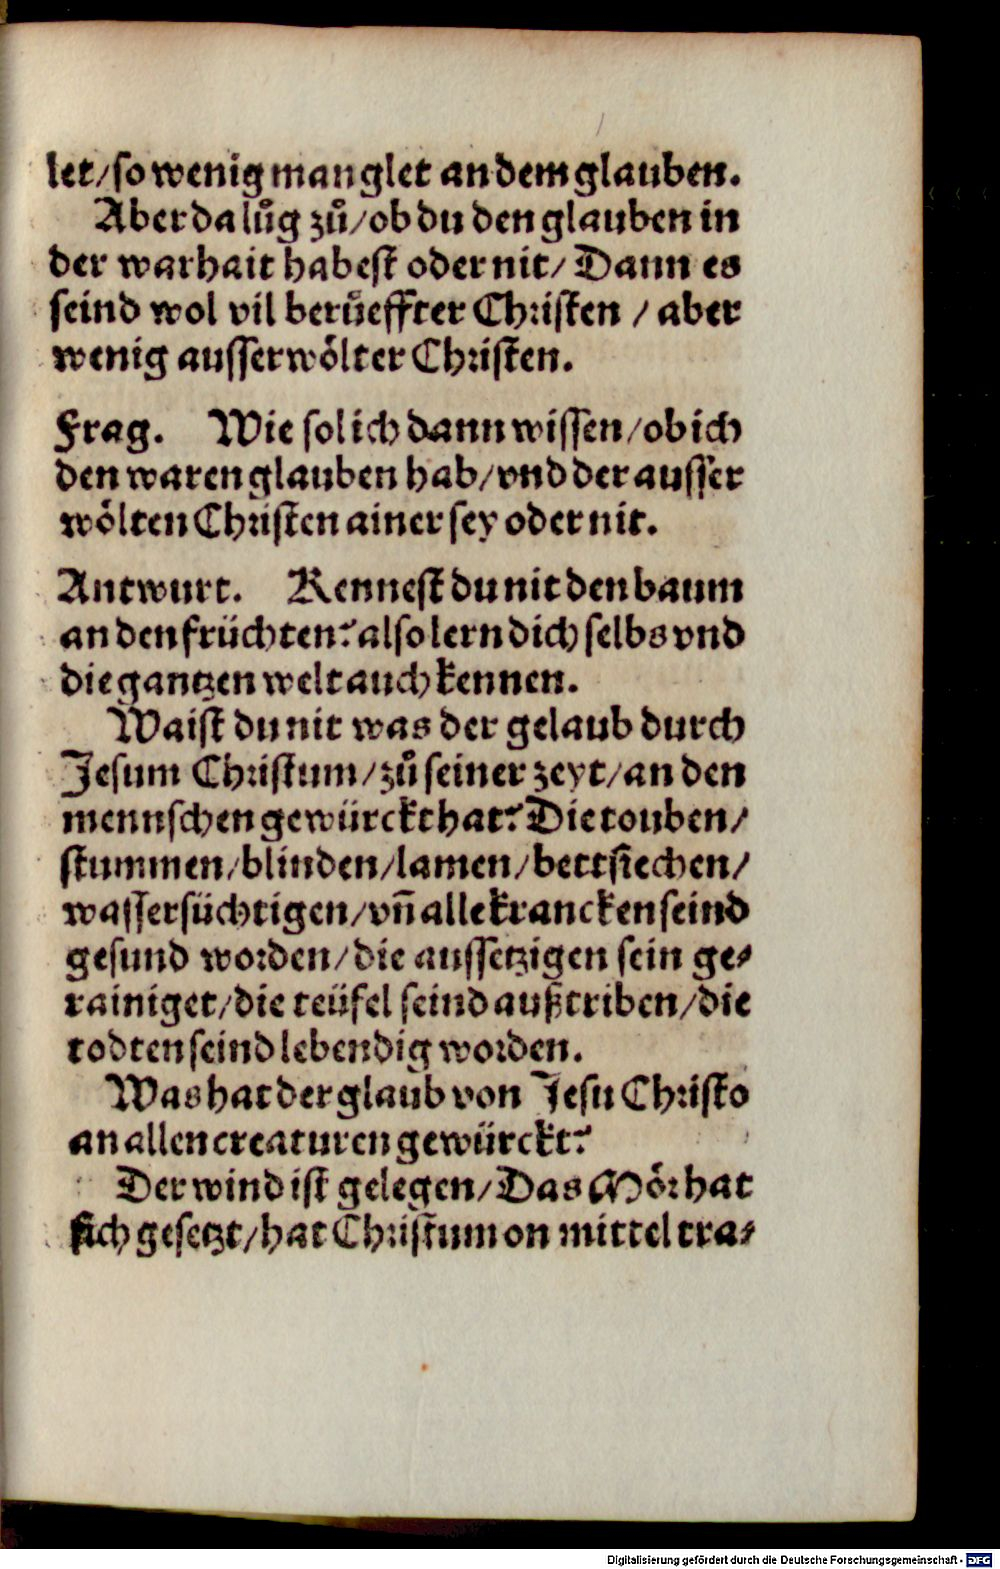 let/ so wenig manglet an dem glauben.
Aber da lůg zů/ ob du den glauben in
der warhait habest oder nit/ Dann es
seind wol vil berůeffter Christen / aber
wenig ausserwölter Christen.
Frag. Wie sol ich dann wissen/ ob ich
den waren glauben hab/ vnd der ausser
wölten Christen ainer sey oder nit.
Antwurt. Kennest du nit den baum
an den früchten? also lern dich selbs vnd
die gantzen welt auch kennen.
Waist du nit was der gelaub durch
Jesum Christum/ zů seiner zeyt/ an den
mennschen gewürckt hat? Die touben/
stummen/ blinden/ lamen/ bettsiechen/
wassersüchtigen/ vn̄ alle krancken seind
gesund worden/ die aussetzigen sein ge⸗
rainiget/ die teüfel seind außtriben/ die
todten seind lebendig worden.
Was hat der glaub von Jesu Christo
an allen creaturen gewürckt?
Der wind ist gelegen/ Das Mör hat
sich gesetzt/ hat Christum on mittel tra⸗
Digitalisierung gefördert durch die Deutsche Forschungsgemeinschaft - DFG